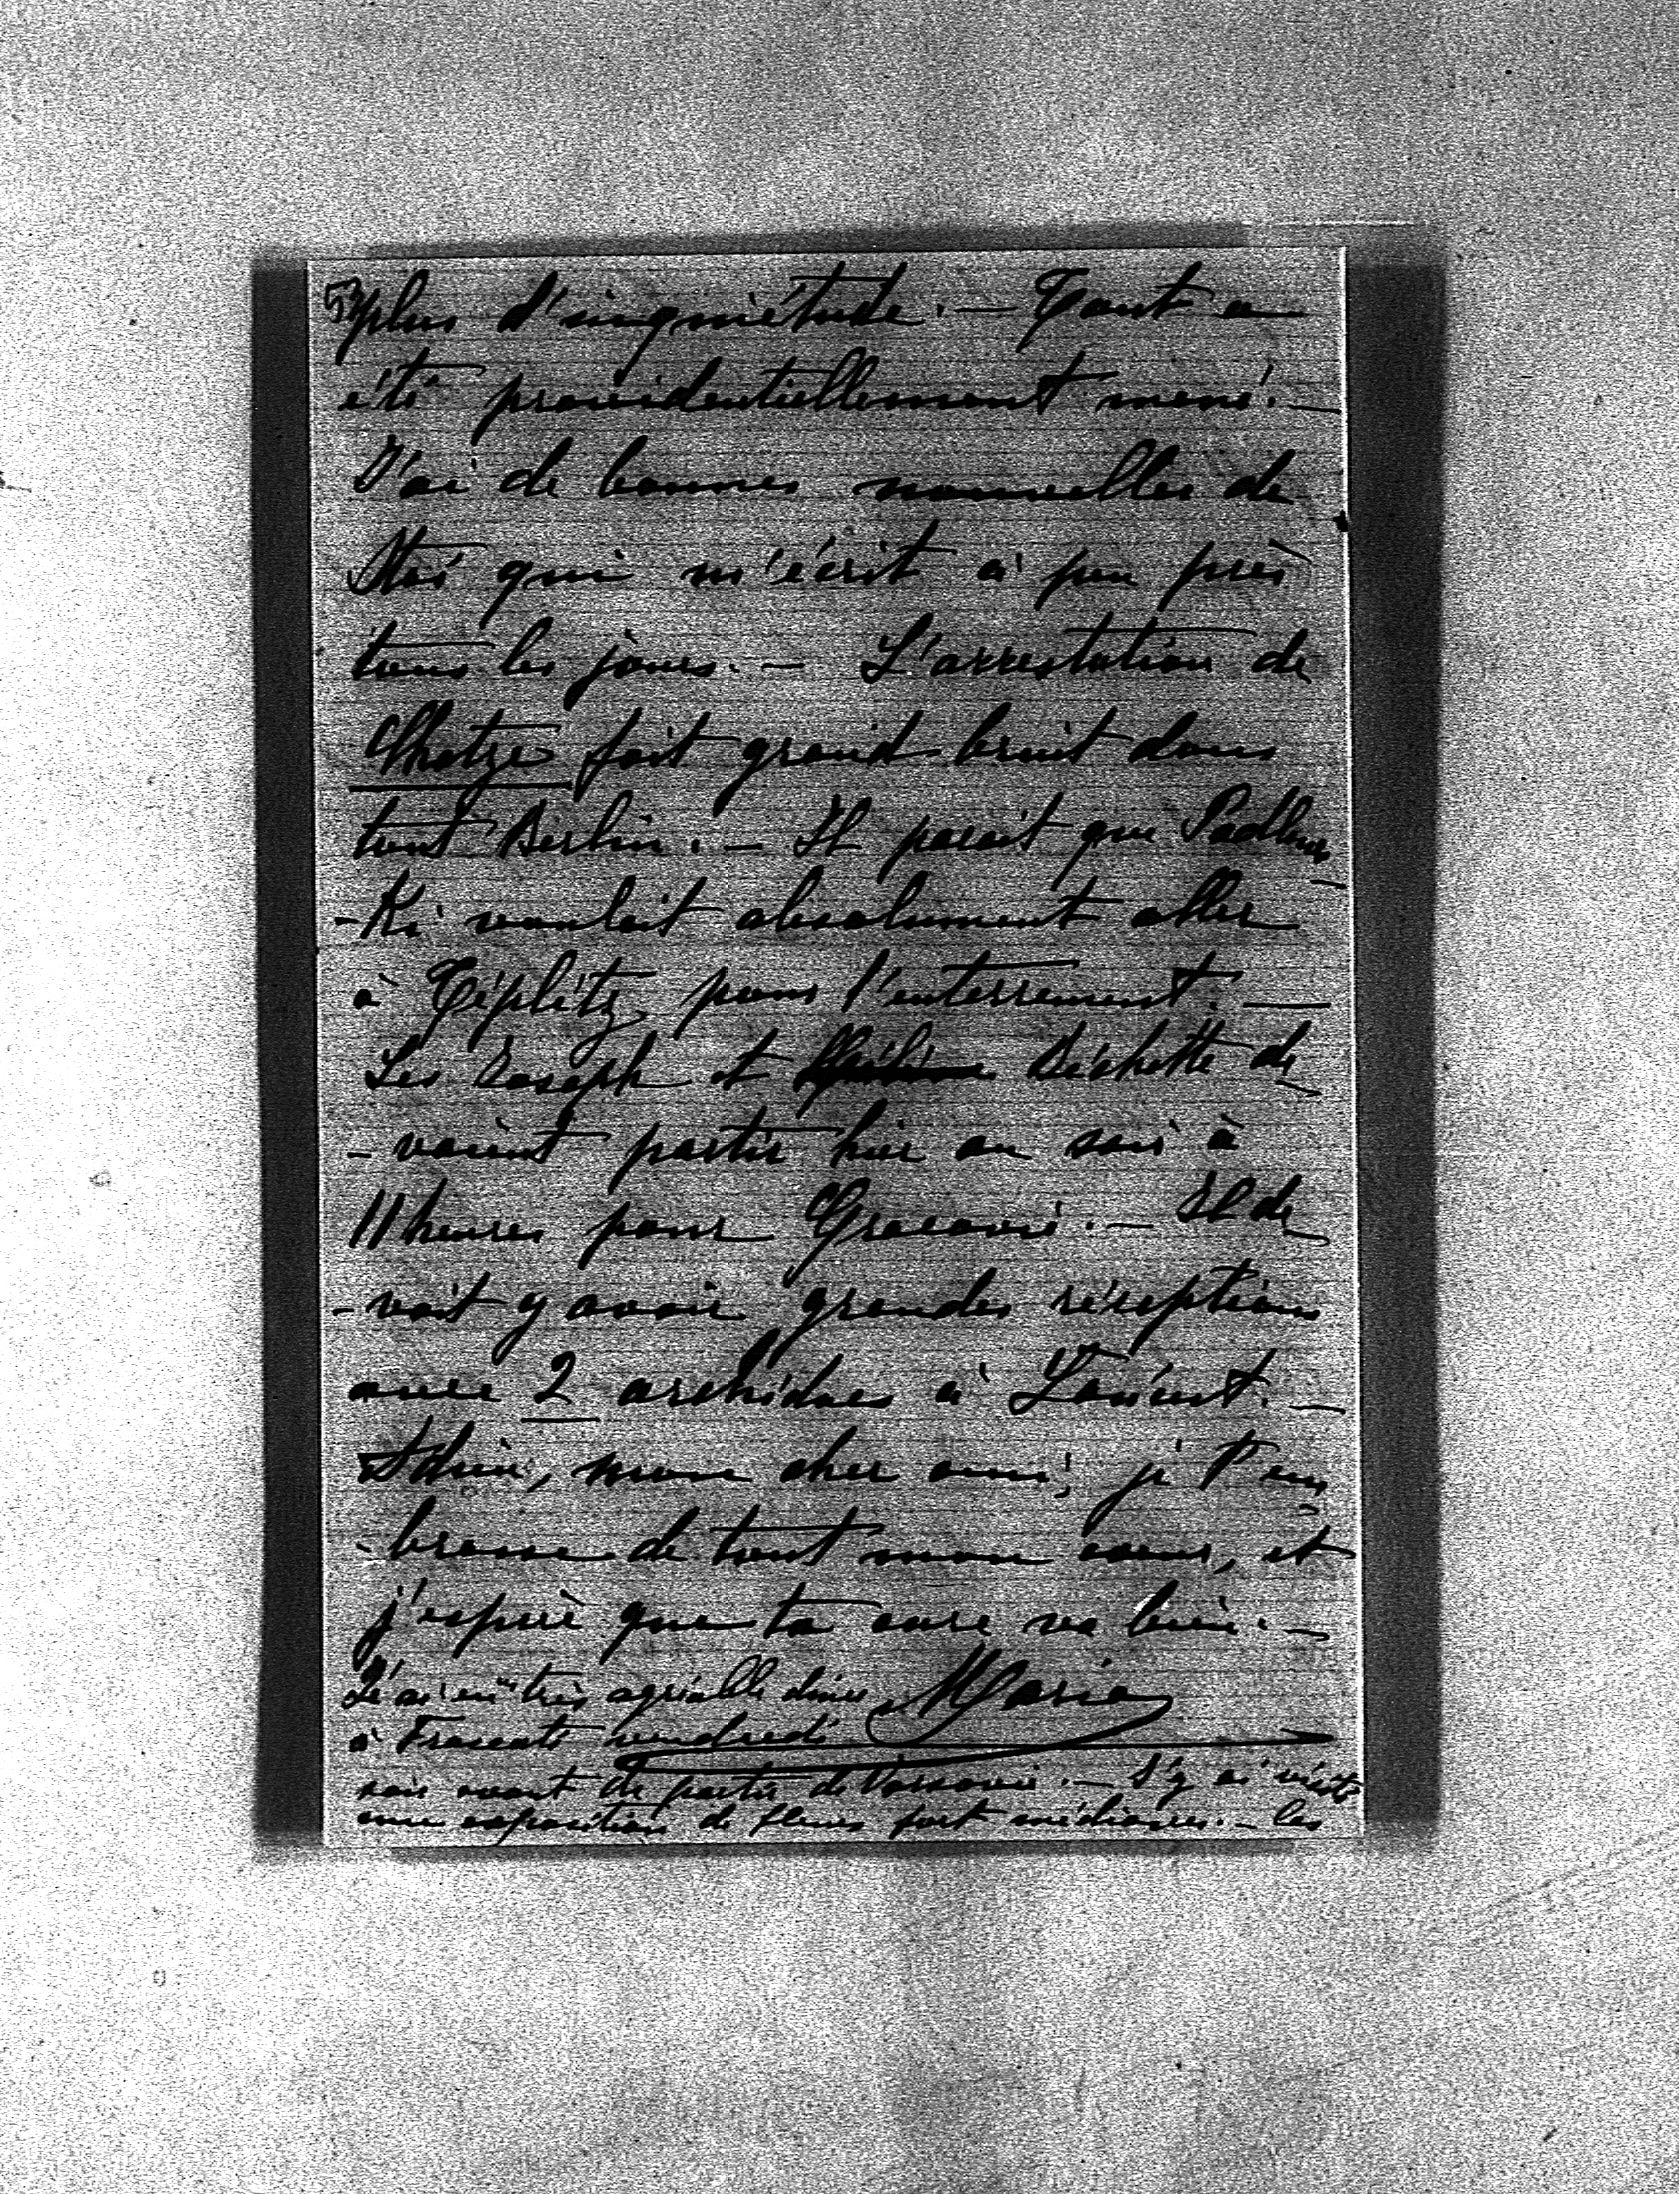 5) plus d'inquiètude. — Tout a
été providentiellement mené. —
J'ai de bonnes nouvelles de
Stas' qui m'écrit à peu près
tous les jours. — L'arrestation de
fait grand bruit dans
tout Berlin. — Il parait que Padlews
-Ki voulait absolument aller
à Téplitz pour l'enterrement. —
Les Joseph et Béchette de
-vaient partir hier au soir à
11 heures pour Cracovie. — Il de
-vait y avoir grandes réceptions
avec 2 archiducs à Łancut. —
Adieu, mon cher ami, je t'em
-brasse de tout mon coeur, et
j'espère que ta cure va bien. —
J'ai eu très agréable diner Marie
à Frascati vendredi
soir avant de partir de Varsovie. — J'y ai visité
une exposition de fleurs fort médiocres. — les